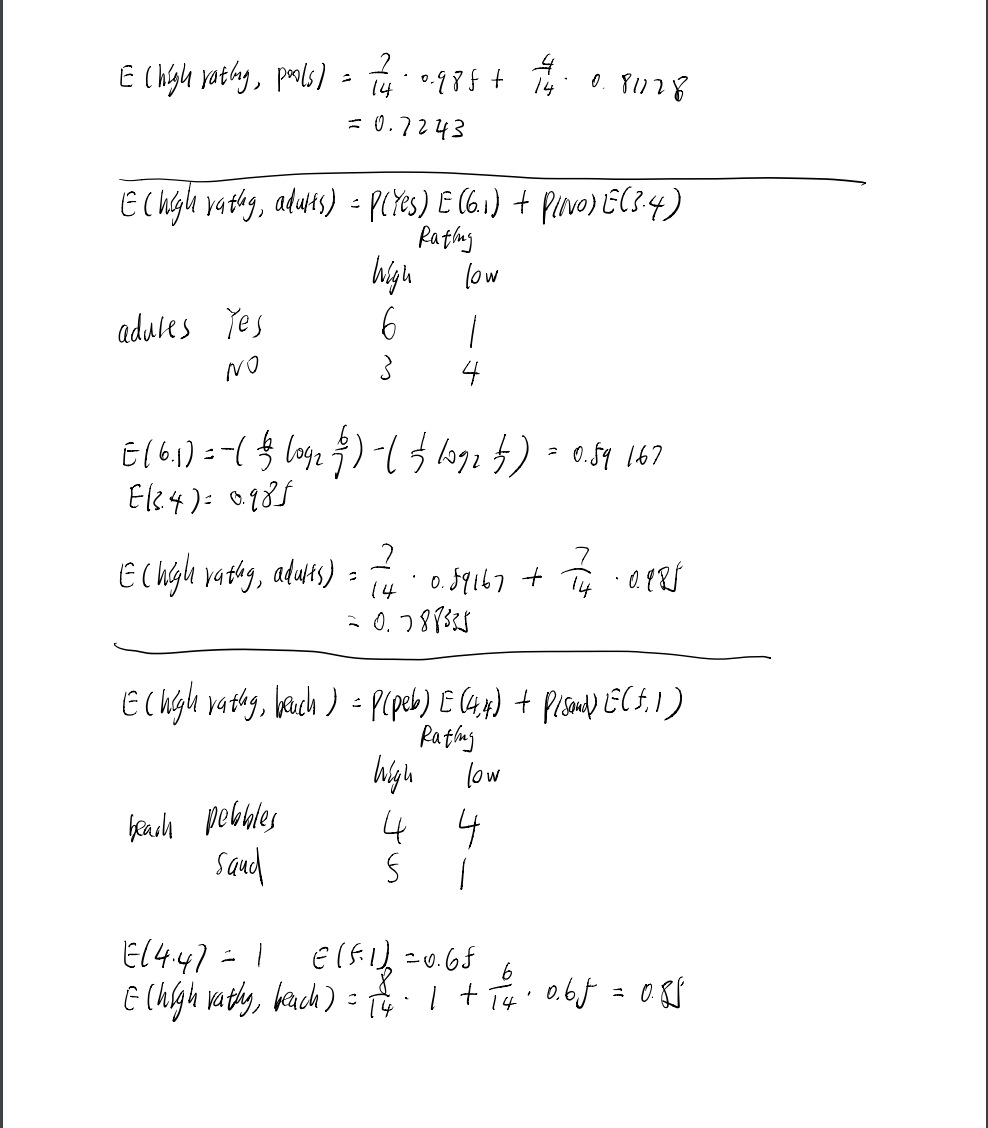 E (high rating, pools) = 7/14 · 0.985 + 4/14 · 0.81128
= 0.7243
E (high rating, adults) = P(Yes) E(6.1) + P(No) E(3.4)
Rating
high low
adults Yes 6 1
NO 3 4
E(6.1) = -(6/7 log2 6/7) - (1/7 log2 1/7) = 0.59167
E(3.4) = 0.985
E (high rating, adults) = 7/14 · 0.59167 + 7/14 · 0.985
= 0.788335
E (high rating, beach) = P(peb) E(4,4) + P(sand) E(5,1)
Rating
high low
beach pebbles 4 4
sand 5 1
E(4.4) = 1 E(5.1) = 0.65
E (high rating, beach) = 8/14 · 1 + 6/14 · 0.65 = 0.85